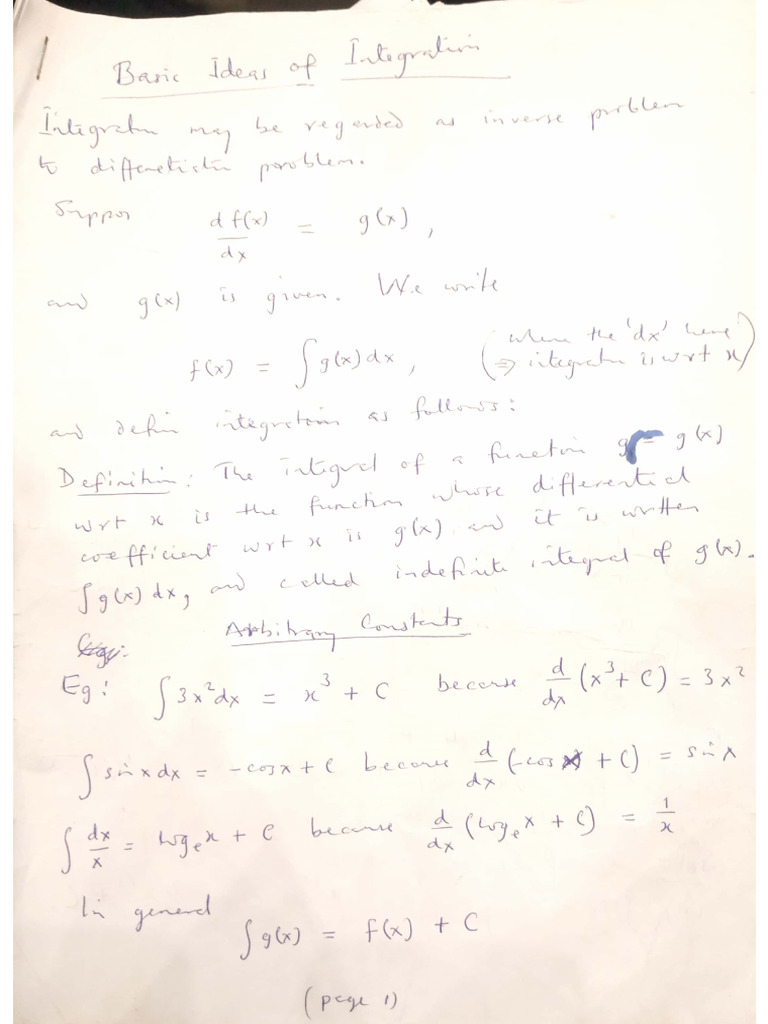 Basic Ideas of Integration
Integratn may be regarded as inverse problem
to differetiatn problem.
Suppos df(x)/dx = g(x),
and g(x) is given. We write
f(x) = ∫g(x)dx, (where the 'dx' here
⇒ integratn is wrt x)
and defin integration as follows:
Definition: The integral of a function g = g(x)
wrt x is the function whose differential
coefficient wrt x is g(x) and it is written
∫g(x) dx, and called indefinite integral of g(x).
Arbitrary Constants
Eg: ∫3x²dx = x³ + C because d/dx (x³ + C) = 3x²
∫sinxdx = -cosx + C because d/dx (-cosx + C) = sinx
∫dx/x = logₑx + C because d/dx (logₑx + C) = 1/x
In general
∫g(x) = f(x) + C
(page 1)